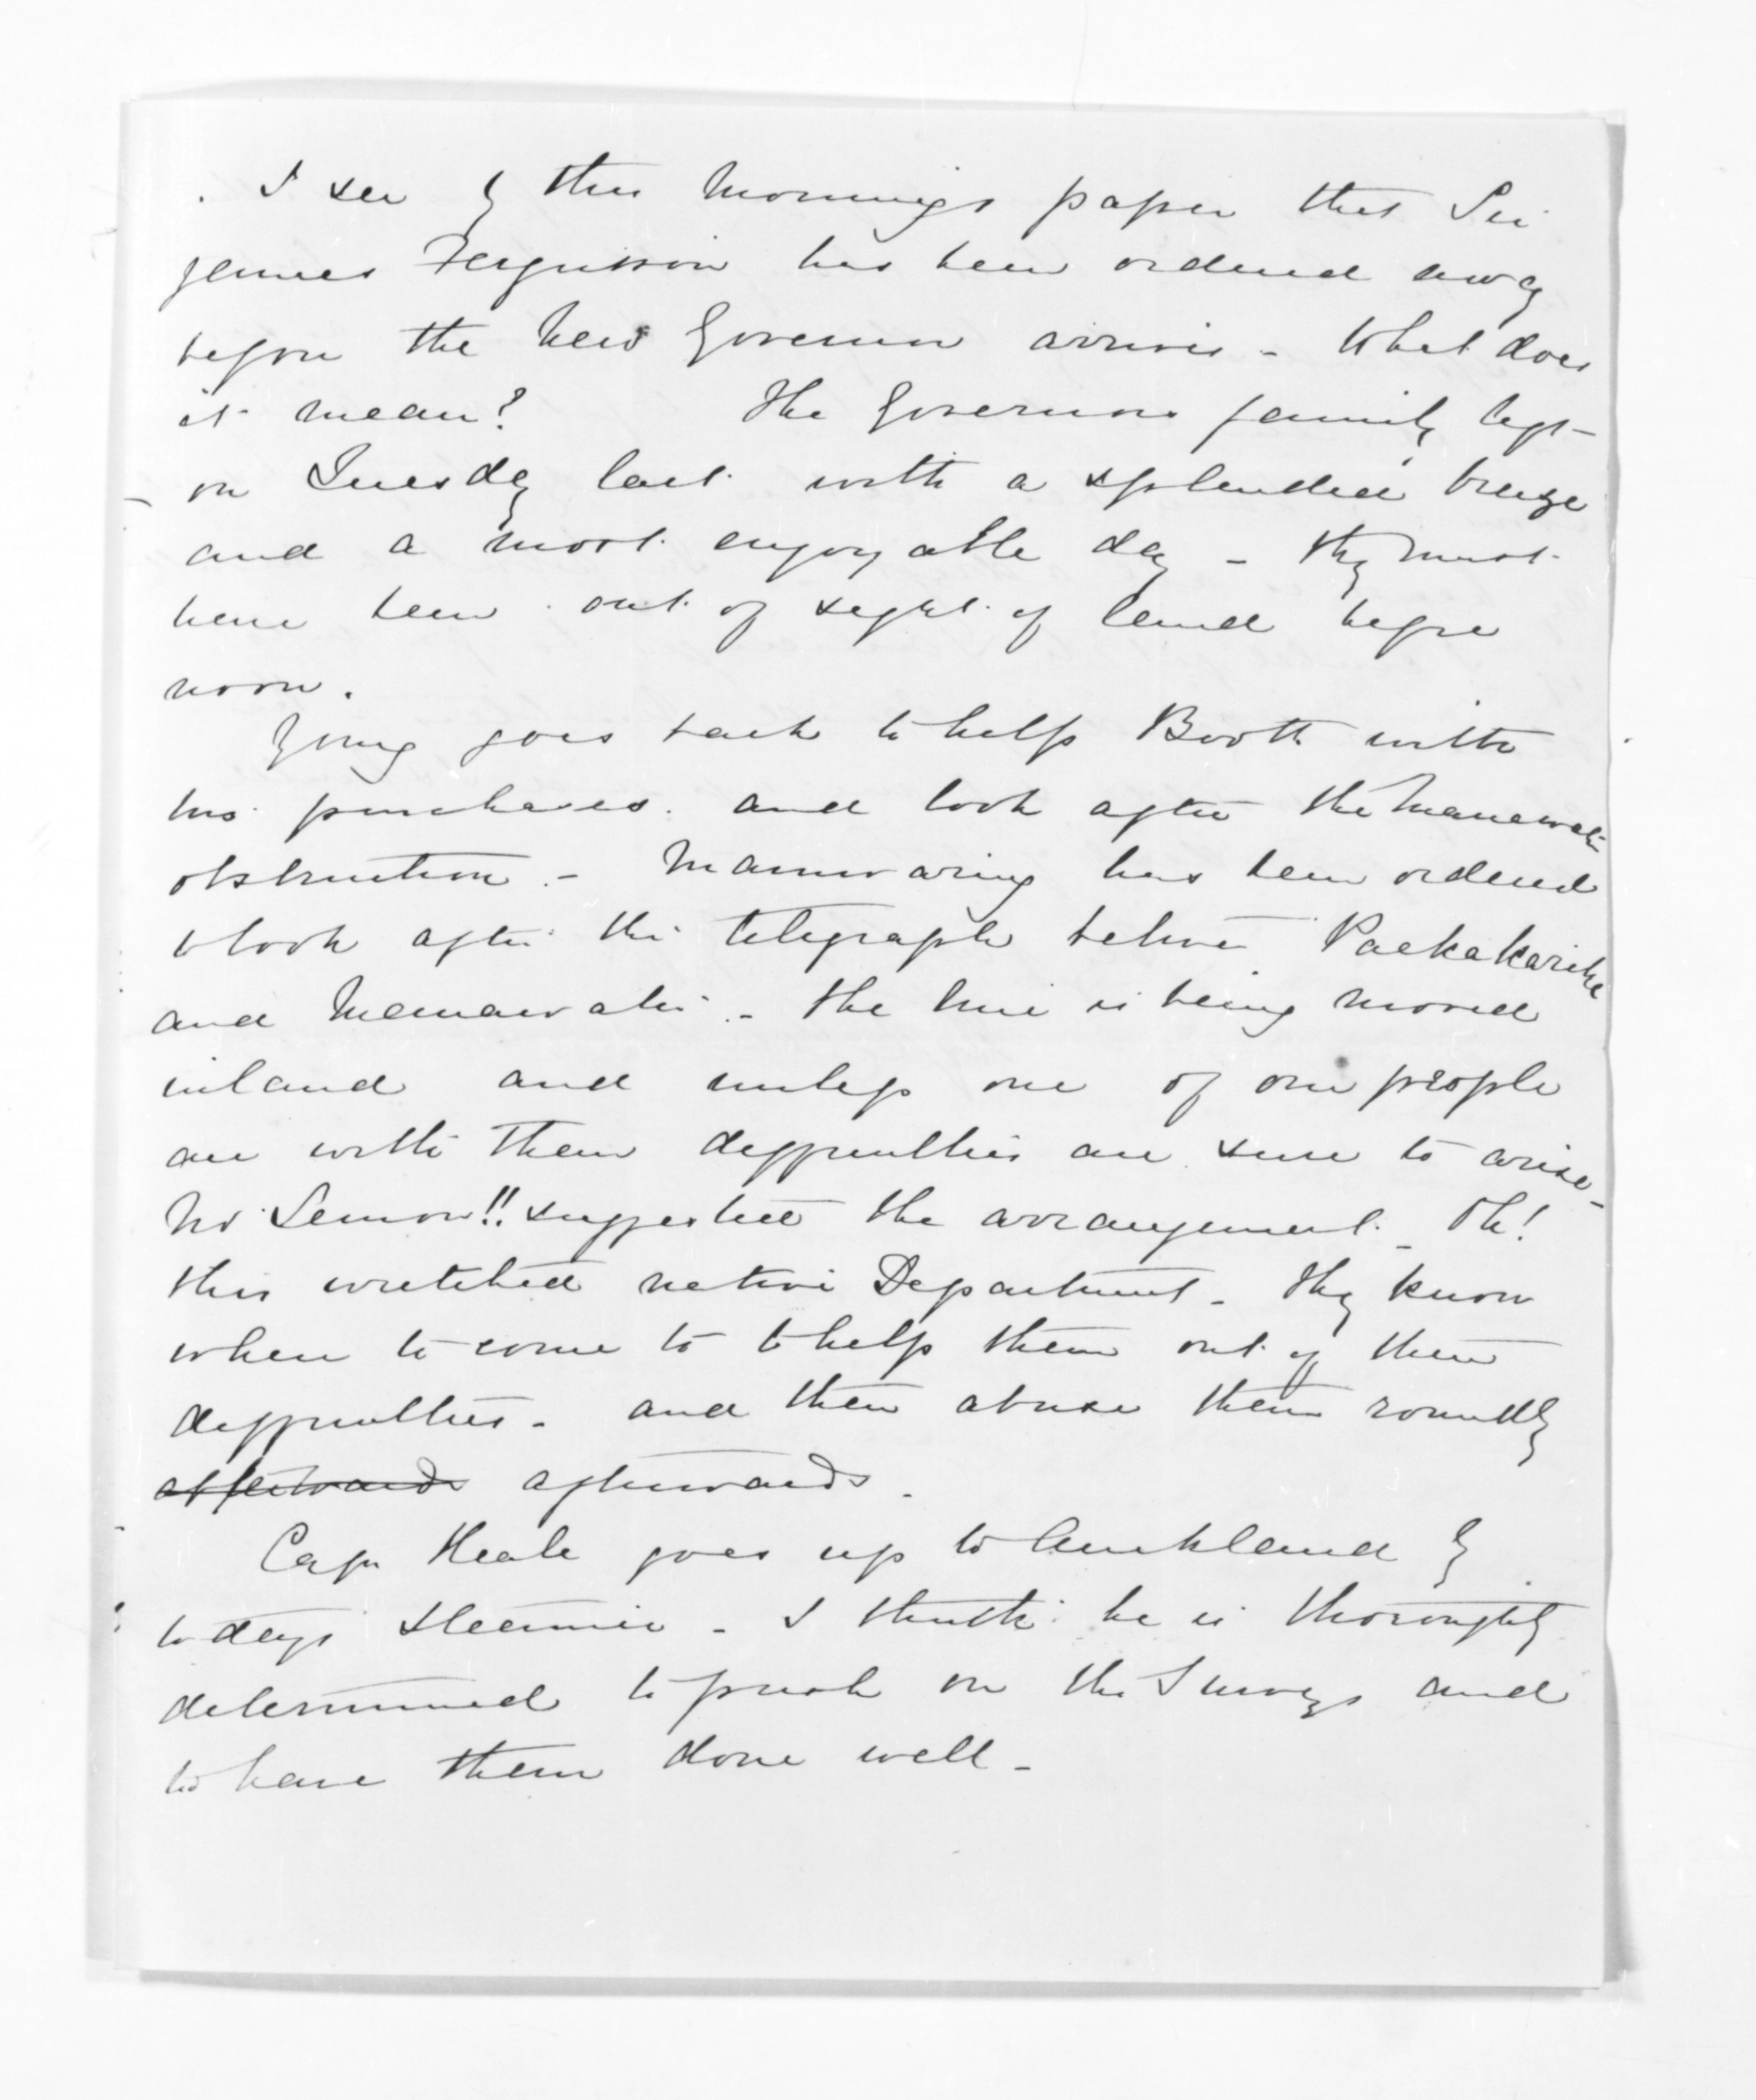 I see by this mornings paper that Sir
James Fergusson has been ordered away
before the new Governor arrives - What does
it mean? The Governors family left
on Tuesday last with a splendid breeze
and a most enjoyable day - they must
have been out of sight of land before
noon.
Young goes back to help Booth with
his purchases. and look after the Manawatu
obstruction. - Mannwaring has been ordered
to look after the telegraph between Paekakariki
and Manawatu. - The line is being moved
inland and unless one of our people
are with them difficulties are sure to arise -
Mr Lemon!! suggested the arrangement - Oh!
this wretched native Department - They know
when to come to to help them out of their
difficulties - and then abuse them roundly
afterwards afterwards.
Capn Heale goes up to Auckland by
to days steamer - I think he is thoroughly
determined to push on the Surveys and
to have them done well -